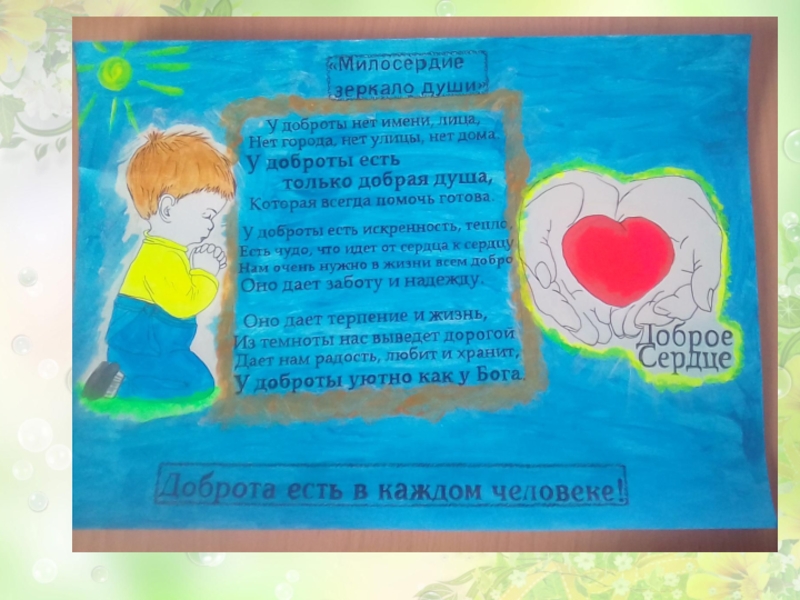 «Милосердие
зеркало души»
У доброты нет имени, лица,
Нет города, нет улицы, нет дома.
У доброты есть
только добрая душа,
Которая всегда помочь готова.
У доброты есть искренность, тепло,
Есть чудо, что идет от сердца к сердцу
Нам очень нужно в жизни всем добро
Оно дает заботу и надежду.
Оно дает терпение и жизнь,
Из темноты нас выведет дорогой
Дает нам радость, любит и хранит,
У доброты уютно как у Бога.
Доброе
Сердце
Доброта есть в каждом человеке!